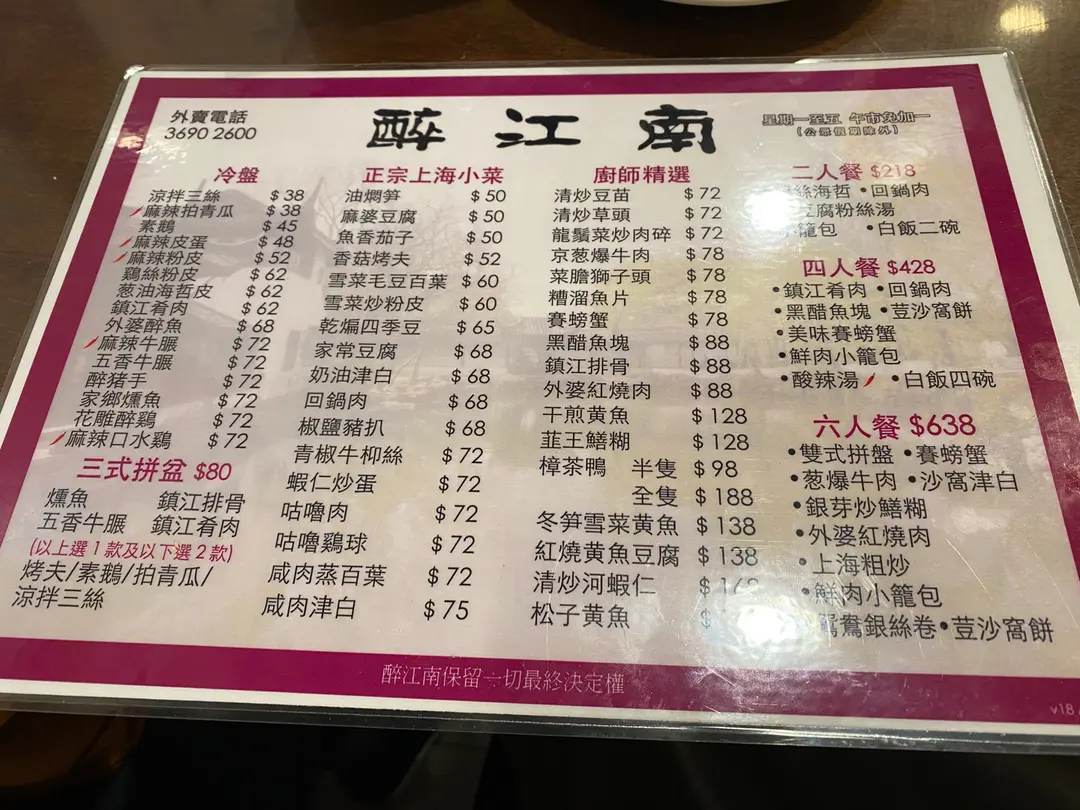 外賣電話
3690 2600
醉江南
星期一至五 午市免加一
(公眾假期除外)
冷盤
涼拌三絲 $38
麻辣拍青瓜 $38
素鵝 $45
麻辣皮蛋 $48
麻辣粉皮 $52
鷄絲粉皮 $62
葱油海哲皮 $62
鎮江肴肉 $62
外婆醉魚 $68
麻辣牛𦟌 $72
五香牛𦟌 $72
醉猪手 $72
家鄉燻魚 $72
花雕醉鷄 $72
麻辣口水鷄 $72
三式拼盆 $80
燻魚 鎮江排骨
五香牛𦟌 鎮江肴肉
(以上選1款及以下選2款)
烤夫/素鵝/拍青瓜/
涼拌三絲
正宗上海小菜
油燜笋 $50
麻婆豆腐 $50
魚香茄子 $50
香菇烤夫 $52
雪菜毛豆百葉 $60
雪菜炒粉皮 $60
乾煸四季豆 $65
家常豆腐 $68
奶油津白 $68
回鍋肉 $68
椒鹽豬扒 $68
青椒牛柳絲 $72
蝦仁炒蛋 $72
咕嚕肉 $72
咕嚕鷄球 $72
咸肉蒸百葉 $72
咸肉津白 $75
廚師精選
清炒豆苗 $72
清炒草頭 $72
龍鬚菜炒肉碎 $72
京葱爆牛肉 $78
菜膽獅子頭 $78
糟溜魚片 $78
賽螃蟹 $78
黑醋魚塊 $88
鎮江排骨 $88
外婆紅燒肉 $88
干煎黄魚 $128
韮王鱔糊 $128
樟茶鴨 半隻 $98
全隻 $188
冬笋雪菜黄魚 $138
紅燒黄魚豆腐 $138
清炒河蝦仁 $168
松子黄魚 $
二人餐 $218
絲海哲 •回鍋肉
腐粉絲湯
籠包 •白飯二碗
四人餐 $428
•鎮江肴肉 •回鍋肉
•黑醋魚塊 •荳沙窩餅
•美味賽螃蟹
•鮮肉小籠包
•酸辣湯 •白飯四碗
六人餐 $638
•雙式拼盤 •賽螃蟹
•葱爆牛肉 •沙窩津白
•銀芽炒鱔糊
•外婆紅燒肉
•上海粗炒
•鮮肉小籠包
鴛鴦銀絲卷•荳沙窩餅
醉江南保留一切最終決定權
v18